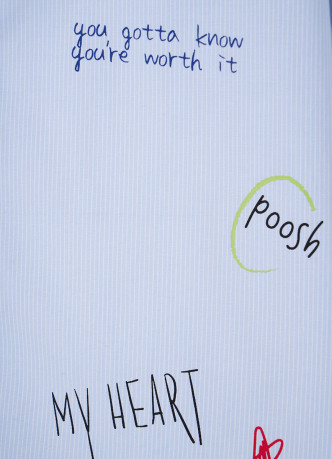 you gotta know
you're worth it
poosh
MY HEART